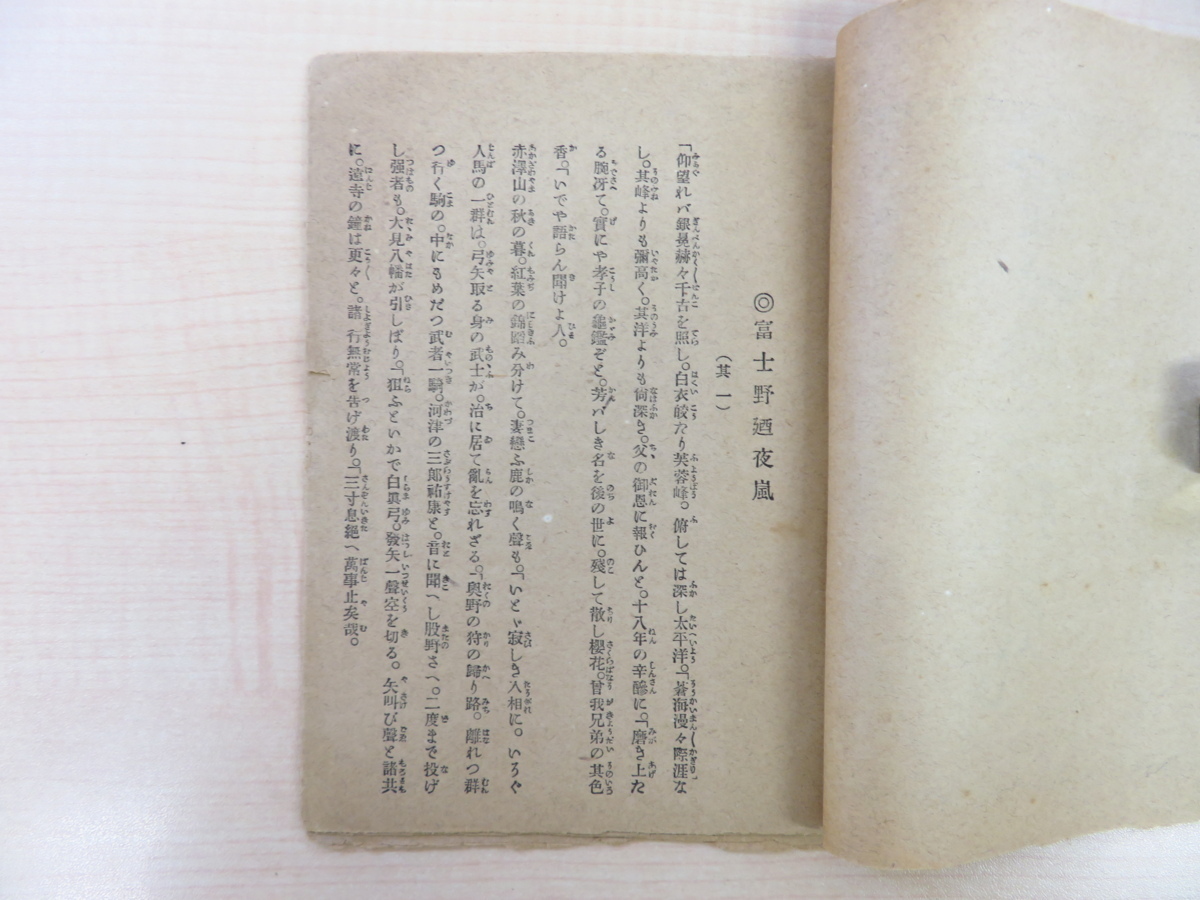 ◎富士野廼夜嵐
(其一)
「仰望れバ銀晃赫々千古を照し。白衣皎たり芙蓉峰。俯しては深し太平洋。「蒼海漫々際涯な
し。其峰よりも彌高く。其洋よりも尙深き。父の御恩に報ひんと。十八年の辛酸に。「磨き上た
る腕冴て。實にや孝子の龜鑑ぞと。芳バしき名を後の世に。殘して散し櫻花。曾我兄弟の其色
香。「いでや語らん聞けよ人。
赤澤山の秋の暮。紅葉の錦蹈み分けて。妻戀ふ鹿の鳴く聲も。「いとゞ寂しき入相に。いろ〲
人馬の一群は。弓矢取る身の武士が。治に居て亂を忘れざる。「奥野の狩の歸り路。離れつ群
つ行く駒の。中にもめだつ武者一騎。河津の三郞祐康と。音に聞へし股野さへ。二度まで投げ
し强者も。大見八幡が引しぼり。「狙ふといかで白眞弓。發矢一聲空を切る。矢叫び聲と諸共
に。遠寺の鐘は更々と。諸行無常を告げ渡り。「三寸息絕へ萬事止矣哉。